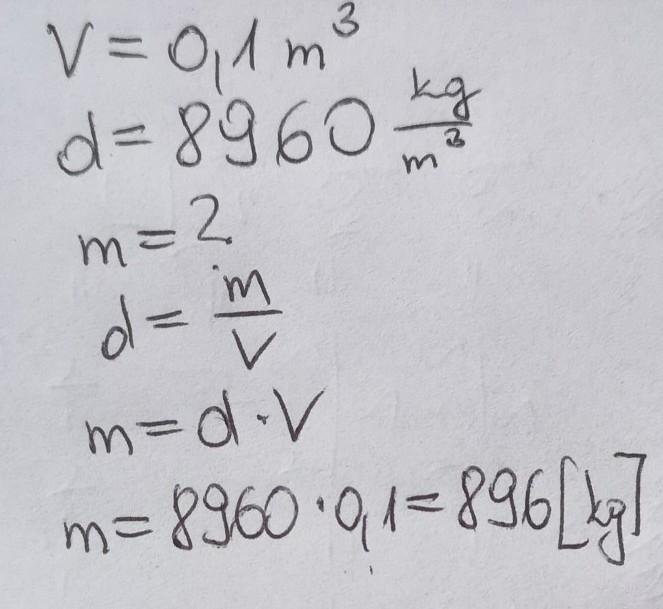 V = 0,1 m³
d = 8960 kg/m³
m = ?
d = m/V
m = d · V
m = 8960 · 0,1 = 896 [kg]